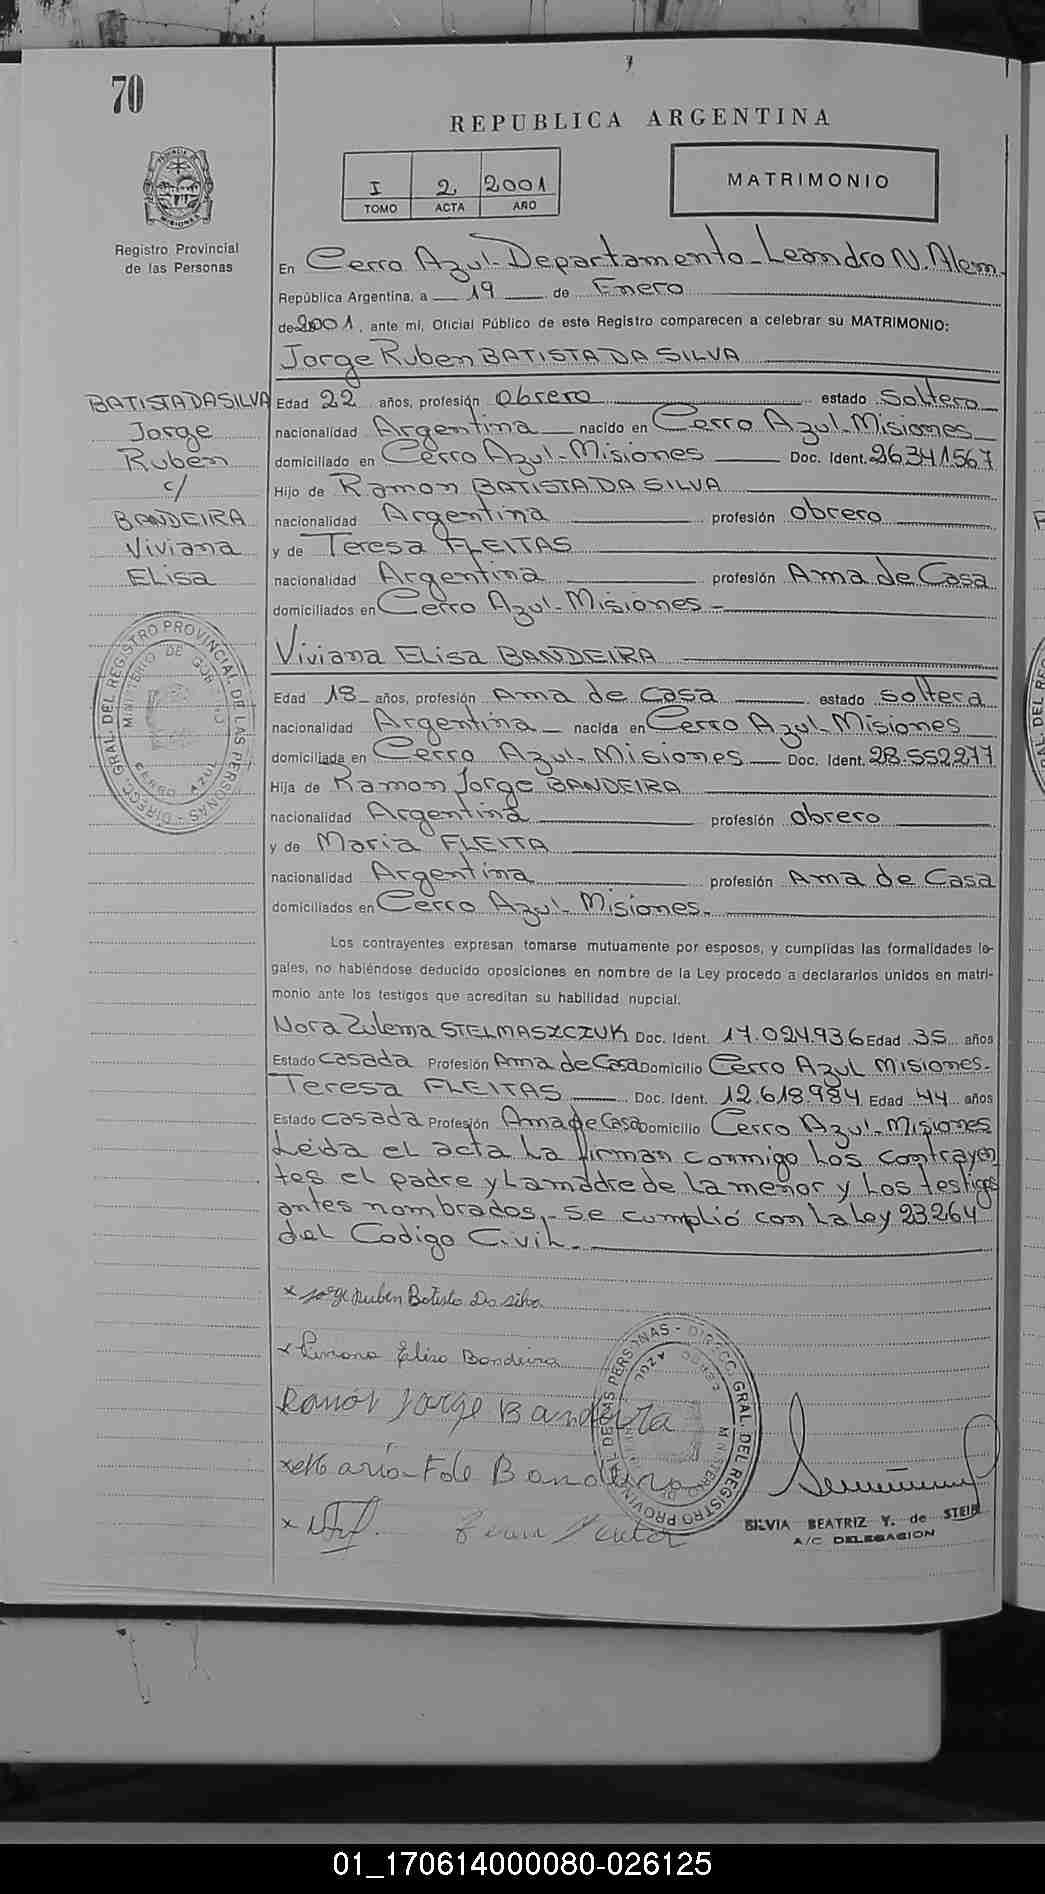 70
REPUBLICA ARGENTINA
I 2 2001
TOMO ACTA AÑO
MATRIMONIO
Registro Provincial
de las Personas
En Cerro Azul-Departamento-Leandro N. Alem.
República Argentina, a 19 de Enero
de 2001, ante mí, Oficial Público de este Registro comparecen a celebrar su MATRIMONIO:
Jorge Ruben BATISTA DA SILVA
BATISTA DA SILVA
Jorge
Ruben
c/
BANDEIRA
Viviana
ELisa
Edad 22 años, profesión obrero estado Soltero
nacionalidad Argentina nacido en Cerro Azul-Misiones
domiciliado en Cerro Azul-Misiones Doc. Ident. 26341567
Hijo de Ramon BATISTA DA SILVA
nacionalidad Argentina profesión obrero
y de Teresa FLEITAS
nacionalidad Argentina profesión Ama de Casa
domiciliados en Cerro Azul-Misiones-
Viviana ELisa BANDEIRA
Edad 18 años, profesión Ama de casa estado soltera
nacionalidad Argentina nacida en Cerro Azul-Misiones
domiciliada en Cerro Azul-Misiones Doc. Ident. 28.552277
Hija de Ramon Jorge BANDEIRA
nacionalidad Argentina profesión obrero
y de Maria FLEITA
nacionalidad Argentina profesión Ama de Casa
domiciliados en Cerro Azul-Misiones.
Los contrayentes expresan tomarse mutuamente por esposos, y cumplidas las formalidades le-
gales, no habiéndose deducido oposiciones en nombre de la Ley procedo a declararlos unidos en matri-
monio ante los testigos que acreditan su habilidad nupcial.
Nora Zulema STELMASZCZUK Doc. Ident. 17.024.936 Edad 35 años
Estado casada Profesión Ama de Casa Domicilio Cerro Azul Misiones.
Teresa FLEITAS Doc. Ident. 12.618.984 Edad 44 años
Estado casada Profesión Ama de Casa Domicilio Cerro Azul-Misiones
Leída el acta la firman conmigo Los contrayen
tes el padre y La madre de La menor y Los testigos
antes nombrados,- se cumplió con la Ley 23264
del Codigo Civil.-
x Jorge Ruben Batista Da Silva
x Viviana Elisa Bandeira
Ramon Jorge Bandeira
x Maria F de Bandeira
SILVIA BEATRIZ Y. de STEIB
A/C DELEGACION
DIRECC. GRAL. DEL REGISTRO PROVINCIAL DE LAS PERSONAS
MINISTERIO DE GOB
CERRO AZUL
DIRECC. GRAL. DEL REGISTRO PROVINCIAL DE LAS PERSONAS
MINISTERIO DE
CERRO AZUL
01_170614000080-026125